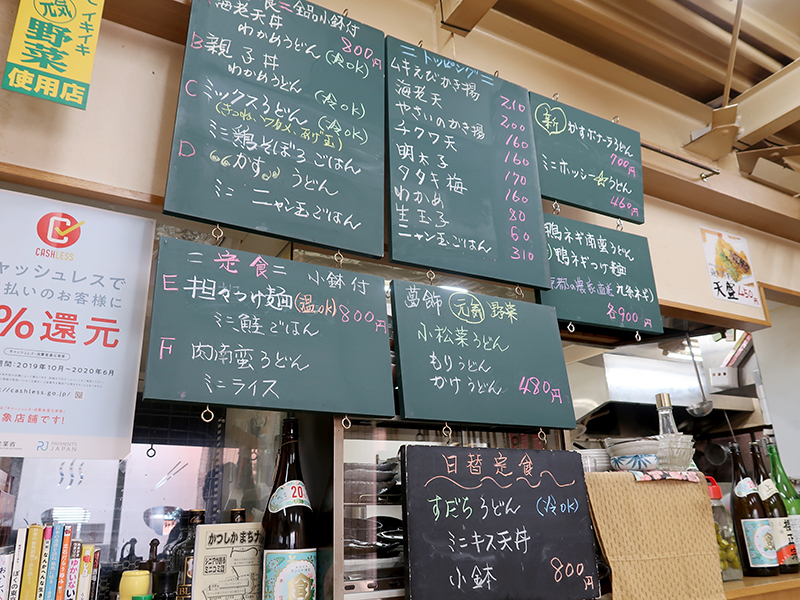 イキイキ
元気
野菜
使用店
定食 = 全品小鉢付
海老天丼 800円
わかめうどん(冷OK)
B 親子丼
わかめうどん (冷OK)
C ミックスうどん (冷OK)
(きつね、ワカメ、あげ玉)
ミニ鶏そぼろごはん
D "かす"うどん
ミニニャン玉ごはん
=トッピング=
ムキえびかき揚 210
海老天 200
やさいのかき揚 160
チクワ天 160
明太子 170
タタキ梅 160
わかめ 80
生玉子 60
ニャン玉ごはん 310
新 かすボナーラうどん
700円
ミニホッシー☆うどん
460円
鴨ネギ南蛮うどん
鴨ネギつけ麺
各900円
天盛 450円
=定食= 小鉢付
E 担々つけ麺(温OK) 800円
ミニ鮭ごはん
F 肉南蛮うどん
ミニライス
葛飾 元気 野菜
小松菜うどん
もりうどん
かけうどん 480円
日替定食
すだちうどん (冷OK)
ミニキス天丼
小鉢 800円
CASHLESS
キャッシュレスで
払いのお客様に
%還元
期間:2019年10月~2020年6月
://cashless.go.jp/
象店舗です!
PAYMENTS
JAPAN
かつしかまちナ